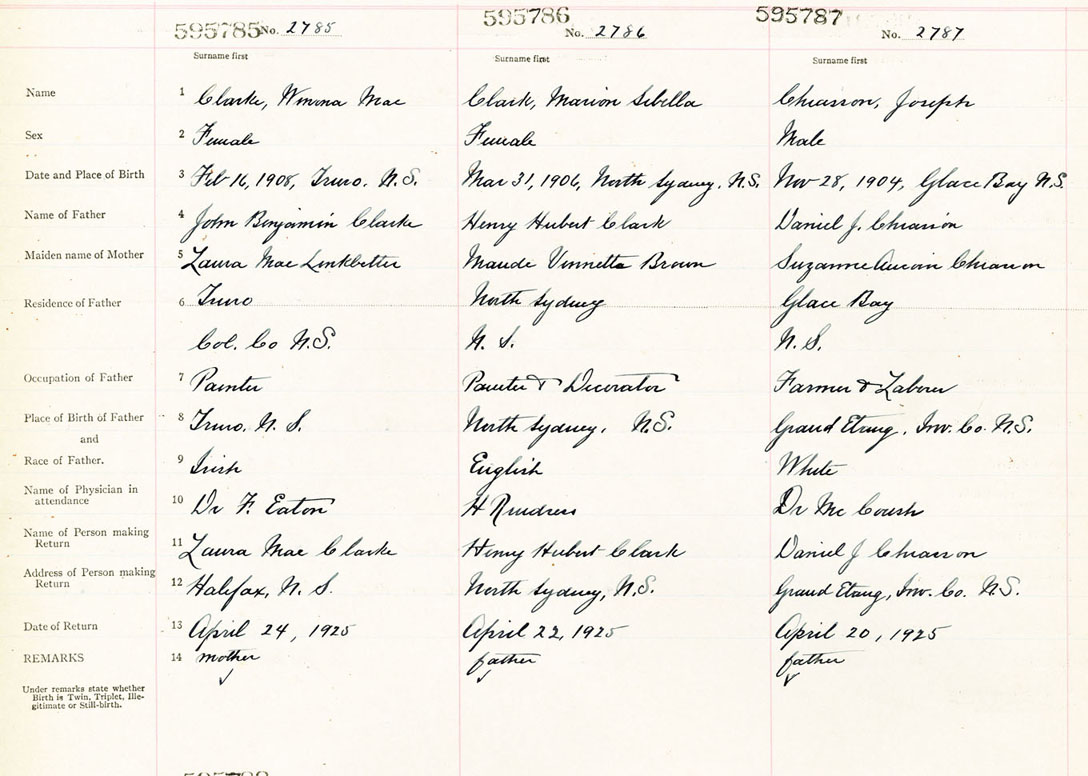 595785 No. 2785 595786 No. 2786 595787 No. 2787
Surname first Surname first Surname first
Name 1 Clarke, Winona Mae Clark, Marion Sibella Chiasson, Joseph
Sex 2 Female Female Male
Date and Place of Birth 3 Feb 16, 1908, Truro. N.S. Mar 31, 1906, North Sydney, N.S. Nov 28, 1904, Glace Bay N.S.
Name of Father 4 John Benjamin Clarke Henry Hubert Clark Daniel J. Chiasson
Maiden name of Mother 5 Laura Mae Linkletter Maude Brown Suzanne Aucoin Chiasson
Residence of Father 6 Truro North Sydney Glace Bay
Col. Co N.S. N. S. N. S.
Occupation of Father 7 Painter Painter & Decorator Farmer & Laborer
Place of Birth of Father 8 Truro, N. S. North Sydney, N.S. Grand Etang, Inv. Co. N.S.
and
Race of Father. 9 Irish English White
Name of Physician in
attendance 10 Dr F. Eaton H Dr Mc
Name of Person making
Return 11 Laura Mae Clarke Henry Hubert Clark Daniel J Chiasson
Address of Person making
Return 12 Halifax, N. S. North Sydney, N.S. Grand Etang, Inv. Co. N.S.
Date of Return 13 April 24, 1925 April 22, 1925 April 20, 1925
REMARKS 14 mother father father
Under remarks state whether
Birth is Twin, Triplet, Ille-
gitimate or Still-birth.